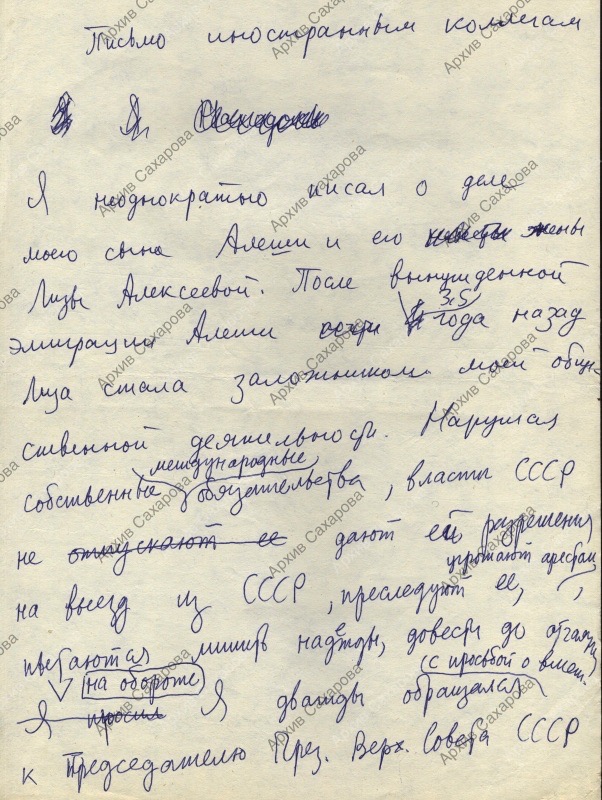 Письмо иностранным коллегам
Я Я
Я неоднократно писал о деле
моего сына Алеши и его жены
Лизы Алексеевой. После вынужденной
3,5
эмиграции Алеши года назад
Лиза стала заложником моей общe-
ственной деятельности. Нарушая
международные
собственные обязательства, власти СССР
не отпускают ее дают ей разрешения
угрожают арестом
на выезд из СССР, преследуют ее,
пытаются лишить надежды, довести до отчаяния
на обороте
с просьбой о вмеш-
Я просил Я дважды обращался
к Председателю През. Верх. Совета СССР
Архив Сахарова